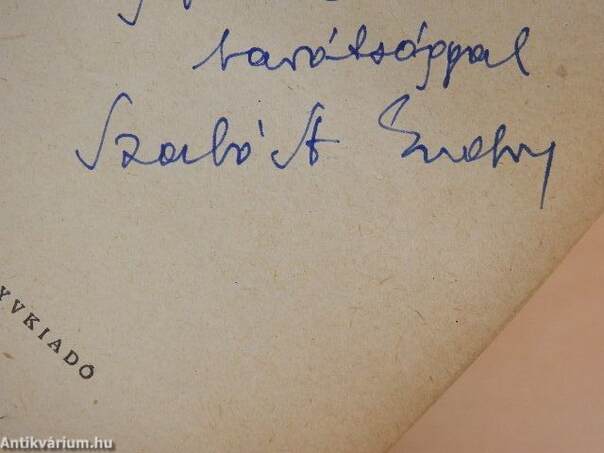 barátsággal
Szabó A Endre
YVKIADÓ
Antikvárium.hu